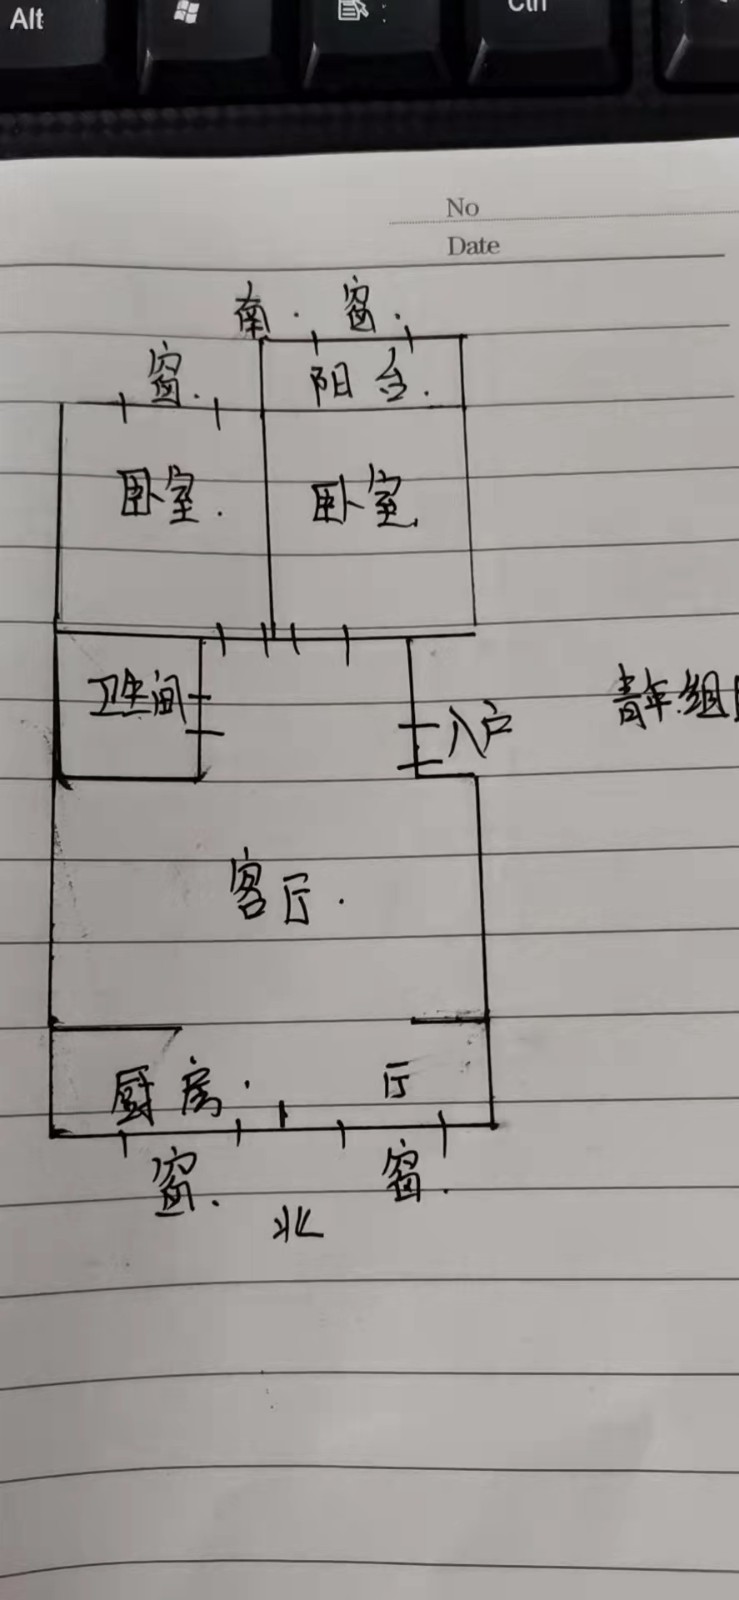 Alt
No
Date
南. 窗.
窗. 阳台.
卧室. 卧室
卫生间 入户 青年.组
客厅.
厨房. 厅
窗. 窗.
北